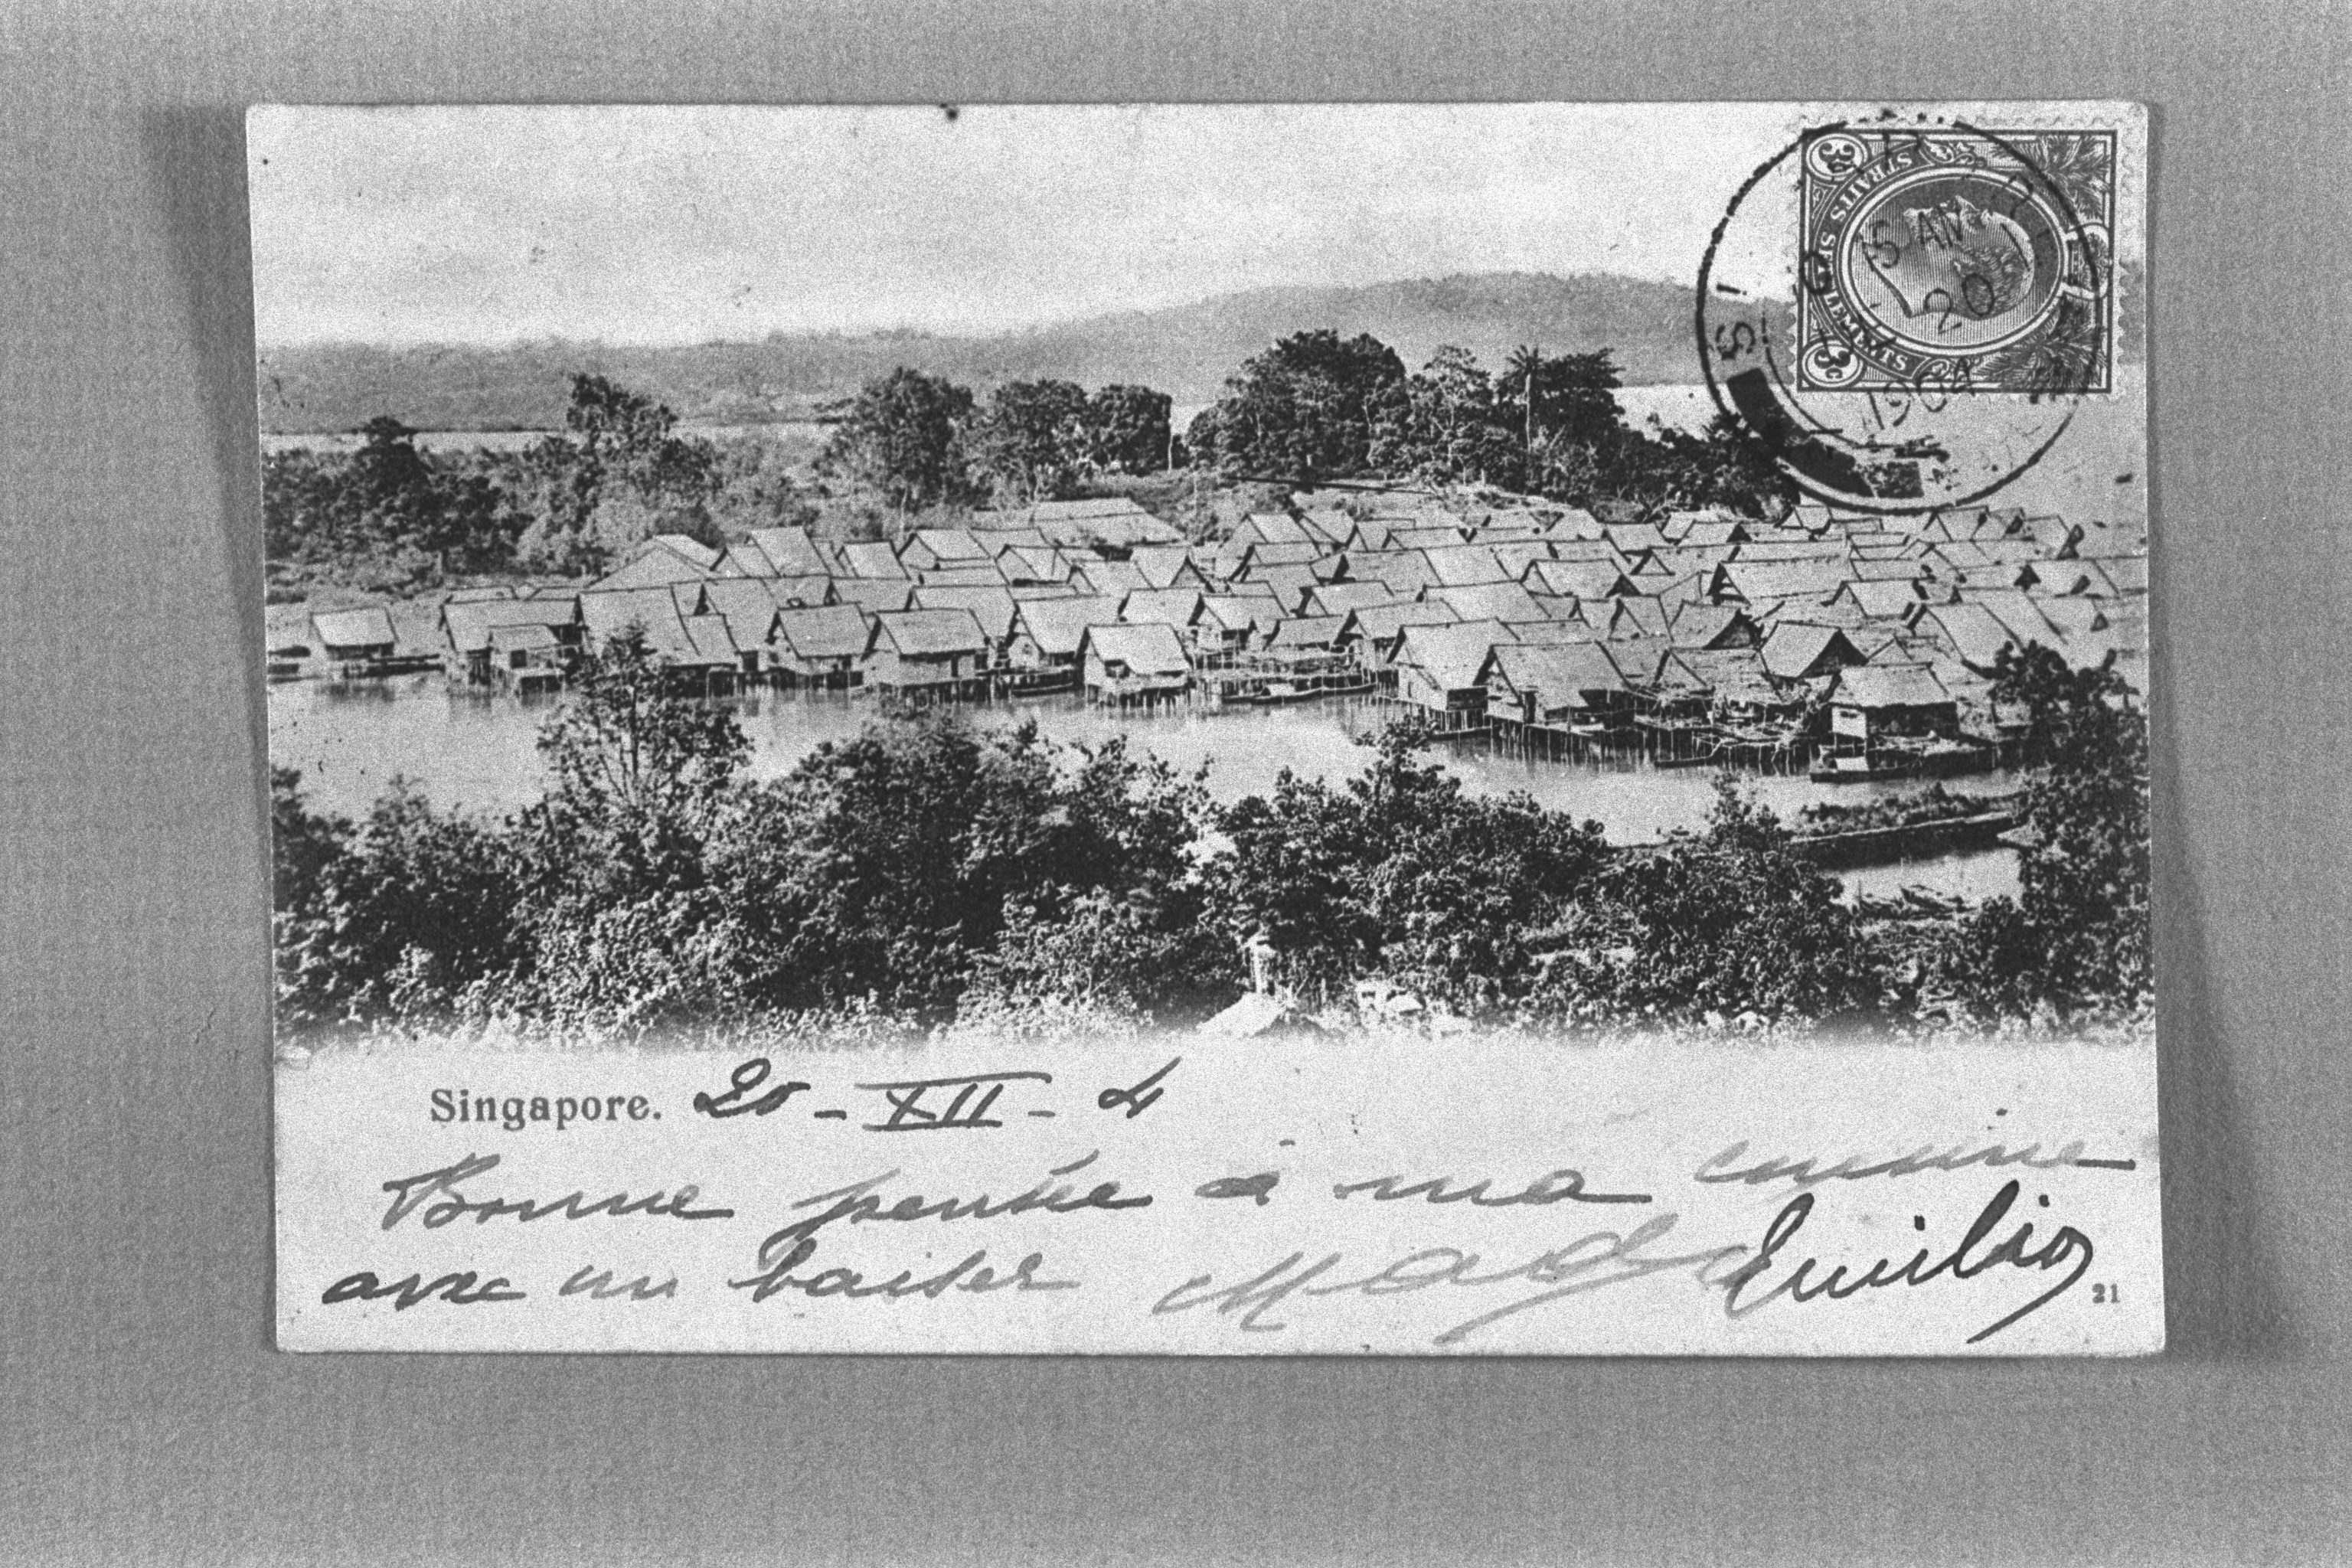 STRAITS SETTLEMENTS
3c 3c
SINGAPORE
5 AM
20
1904
Singapore. 20 - XII - 4
Bonne pensée à ma cousine
avec un baiser Mady Emilio
21